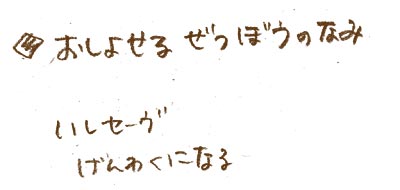 おしよせる ぜつぼうのなみ
いしセーヴ
げんわくになる